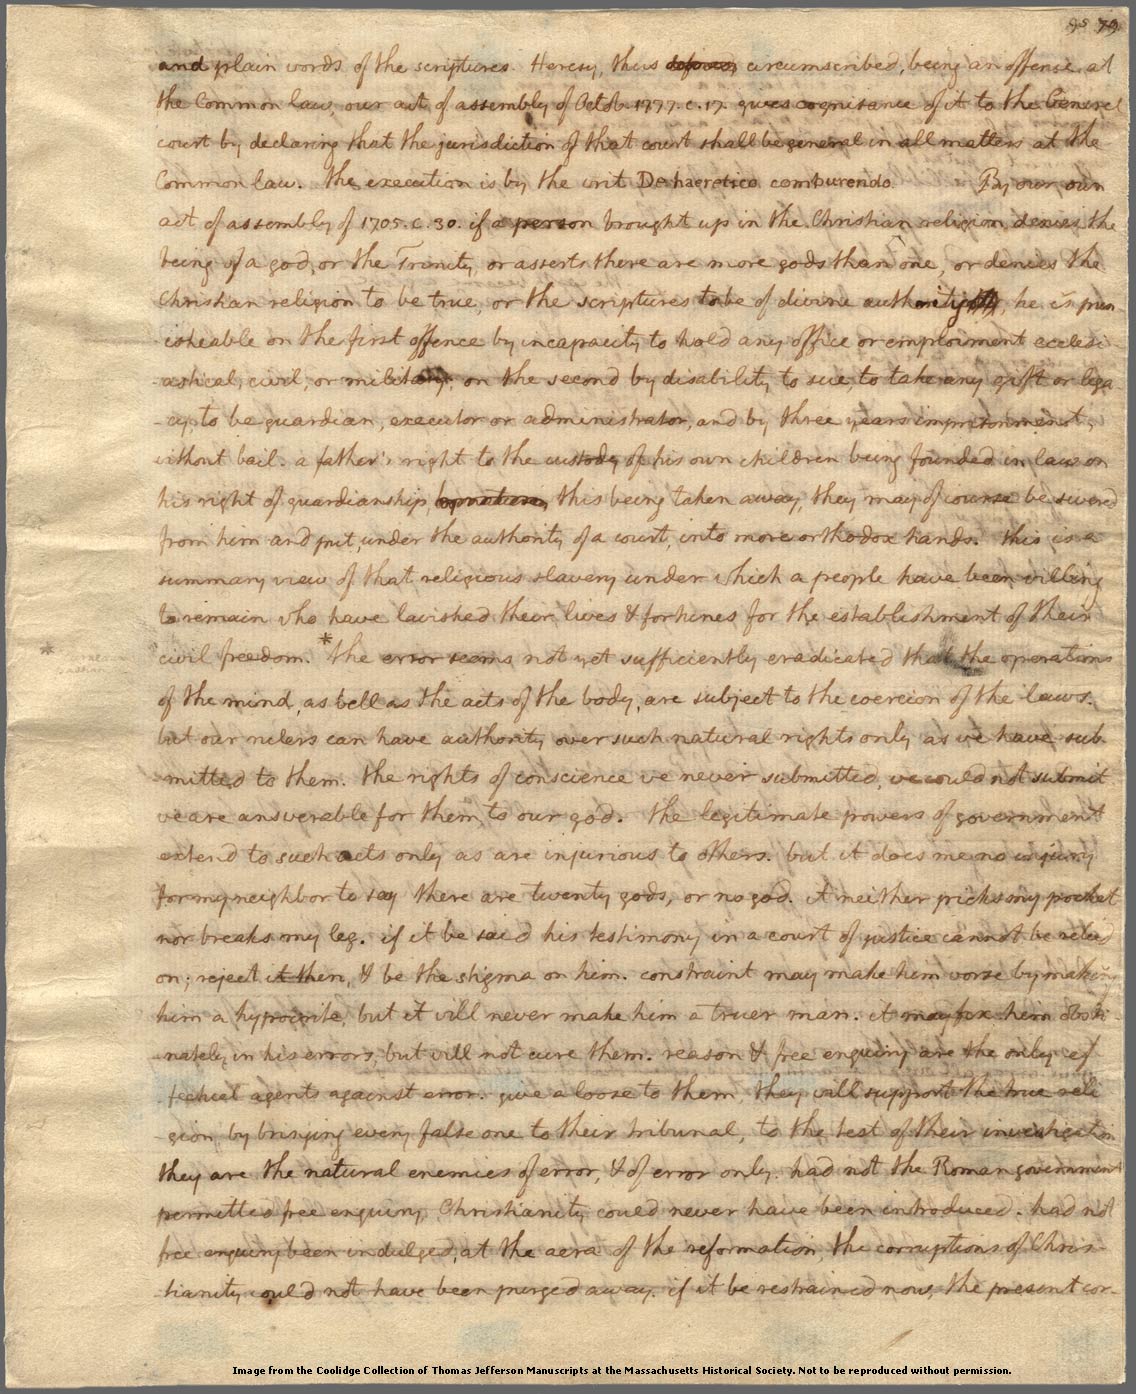 95 79
and plain words of the scriptures. Heresy, thus defined, circumscribed, being an offence at
the Common law, our act of assembly of Octob. 1777. c. 17. gives cognisance of it to the General
court by declaring that the jurisdiction of that court shall be general in all matters at the
Common law. the execution is by the writ De haeretico comburendo. By our own
act of assembly of 1705. c. 30. if a person brought up in the Christian religion denies the
being of a god, or the Trinity, or asserts there are more gods than one, or denies the
Christian religion to be true, or the scriptures to be of divine authority, he is pun-
-isheable on the first offence by incapacity to hold any office or emploiment ecclesi-
-astical, civil, or military; on the second by disability to sue, to take any gift or lega-
-cy, to be guardian, executor or administrator, and by three years imprisonment,
without bail. a father's right to the custody of his own children being founded in law on
his right of guardianship, this being taken away, they may of course be severed
from him and put, under the authority of a court, into more orthodox hands. this is a
summary view of that religious slavery under which a people have been willing
to remain who have lavished their lives & fortunes for the establishment of their
* civil freedom. *the error seems not yet sufficiently eradicated that the operations
of the mind, as well as the acts of the body, are subject to the coercion of the laws.
but our rulers can have authority over such natural rights only as we have sub-
-mitted to them. the rights of conscience we never submitted, we could not submit.
we are answerable for them to our god. the legitimate powers of government
extend to such acts only as are injurious to others. but it does me no injury
for my neighbor to say there are twenty gods, or no god. it neither picks my pocket
nor breaks my leg. if it be said his testimony in a court of justice cannot be relied
on; reject it then, & be the stigma on him. constraint may make him worse by making
him a hypocrite, but it will never make him a truer man. it may fix him obsti-
-nately in his errors, but will not cure them. reason & free enquiry are the only ef-
-fectual agents against error. give a loose to them, they will support the true reli-
-gion, by bringing every false one to their tribunal, to the test of their investigation
they are the natural enemies of error, & of error only. had not the Roman government
permitted free enquiry, Christianity could never have been introduced. had not
free enquiry been indulged, at the aera of the reformation, the corruptions of Chris-
-tianity could not have been purged away. if it be restrained now, the present cor-
Image from the Coolidge Collection of Thomas Jefferson Manuscripts at the Massachusetts Historical Society. Not to be reproduced without permission.